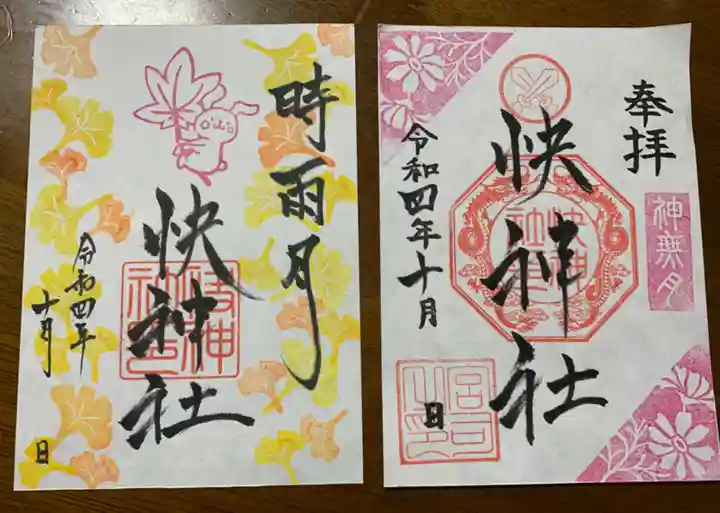 時雨月
快神社
令和四年
十月
日
奉拝
神無月
快神社
令和四年十月
日
快神社
宮司之印